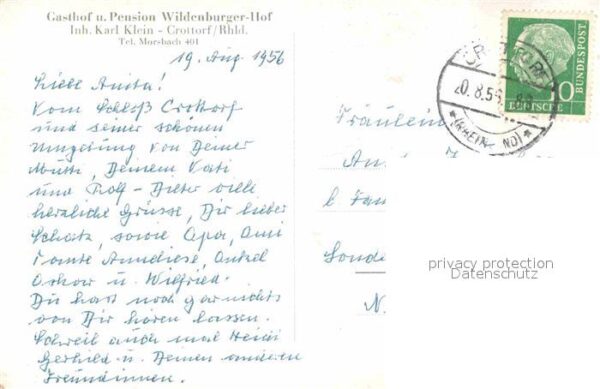 Gasthof u. Pension Wildenburger-Hof
Inh. Karl Klein - Crottorf/Rhld.
Tel. Morsbach 401
19. Aug. 1956
Liebe Anita!
Vom Schloß Crottorf
und seiner schönen
Umgebung von Deiner
Mutti, Deinem Vati
und Rolf-Dieter viele
herzliche Grüsse, Dir lieber
Schatz, sowie Opa, Omi
Tante Anneliese, Onkel
Oskar u. Wilfried.
Du hast noch gar nichts
von Dir hören lassen.
Schreib auch mal Heidi
Gerhild u. Deinen anderen
Freundinnen.
Fräulein
b. Fam
Sonde
N.
CROTTORF
20.8.56
(RHEINLAND)
10
DEUTSCHE
BUNDESPOST
privacy protection
Datenschutz